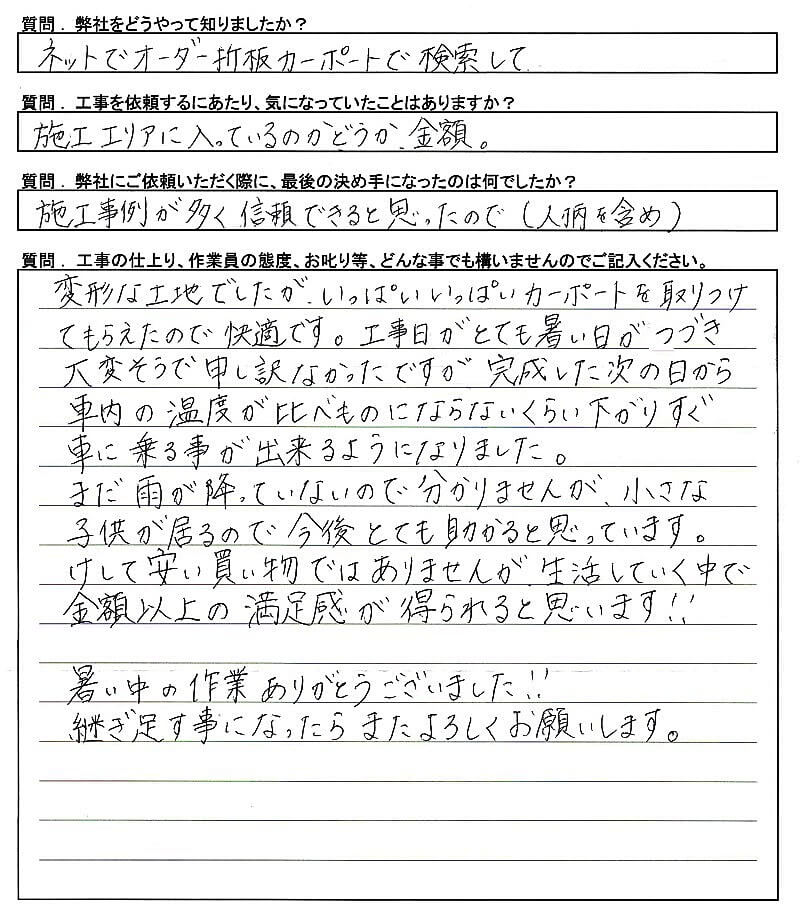 質問．弊社をどうやって知りましたか？
ネットでオーダー折板カーポートで検索して
質問．工事を依頼するにあたり、気になっていたことはありますか？
施工エリアに入っているのかどうか、金額。
質問．弊社にご依頼いただく際に、最後の決め手になったのは何でしたか？
施工事例が多く信頼できると思ったので（人柄を含め）
質問．工事の仕上り、作業員の態度、お叱り等、どんな事でも構いませんのでご記入ください。
変形な土地でしたが、いっぱいいっぱいカーポートを取りつけ
てもらえたので快適です。工事日がとても暑い日がつづき
大変そうで申し訳なかったですが完成した次の日から
車内の温度が比べものにならないくらい下がりすぐ
車に乗る事が出来るようになりました。
まだ雨が降っていないので分かりませんが、小さな
子供が居るので今後とても助かると思っています。
けして安い買い物ではありませんが、生活していく中で
金額以上の満足感が得られると思います!!
暑い中の作業ありがとうございました!!
継ぎ足す事になったらまたよろしくお願いします。